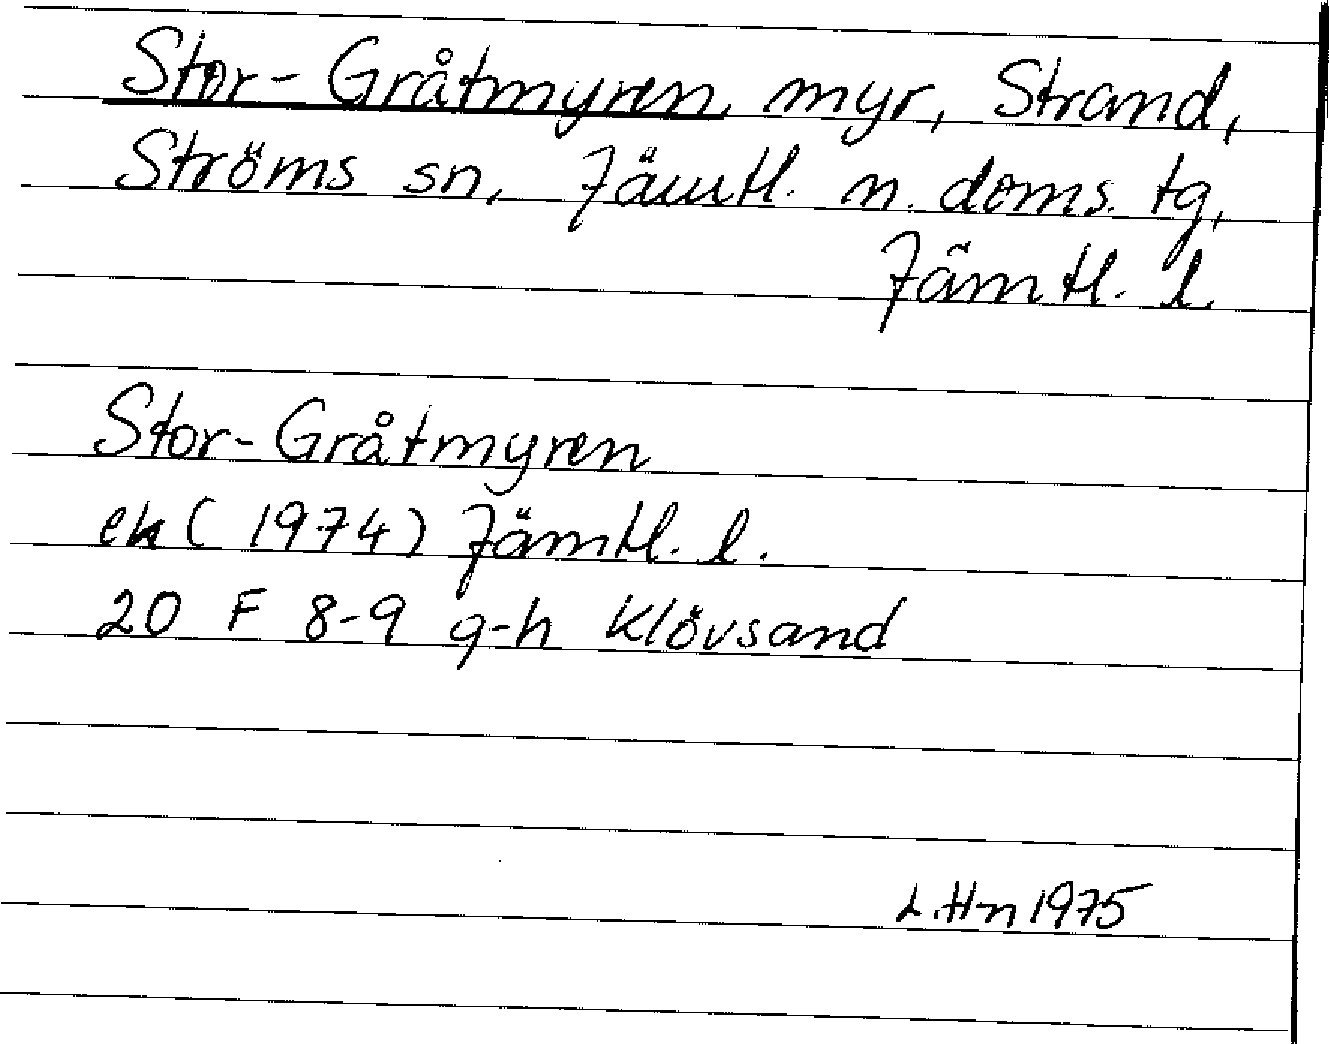 Stor-Gråtmyren, myr, Strand,
Ströms sn, Jämtl. n. doms. tg,
Jämtl. l.
Stor-Gråtmyren
ek (1974) Jämtl. l.
20 F 8-9 g-h Klövsand
L.Hn 1975